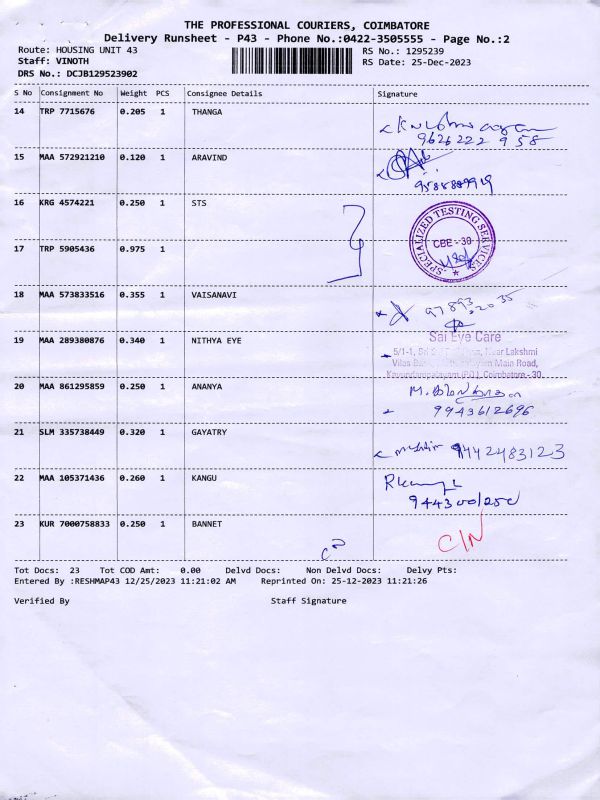 THE PROFESSIONAL COURIERS, COIMBATORE
Delivery Runsheet - P43 - Phone No.:0422-3505555 - Page No.:2
Route: HOUSING UNIT 43 RS No.: 1295239
Staff: VINOTH RS Date: 25-Dec-2023
DRS No.: DCJB129523902
S No Consignment No Weight PCS Consignee Details Signature
14 TRP 7715676 0.205 1 THANGA
9626222 958
15 MAA 572921210 0.120 1 ARAVIND
16 KRG 4574221 0.250 1 STS
SPECIALIZED TESTING SERVICES
CBE - 30
17 TRP 5905436 0.975 1
18 MAA 573833516 0.355 1 VAISANAVI
19 MAA 289380876 0.340 1 NITHYA EYE
Sai Eye Care
5/1-1, Near Lakshmi
Vilas Main Road,
Kavundampalayam (P.O.), Coimbatore - 30.
20 MAA 861295859 0.250 1 ANANYA
9943612696
21 SLM 335738449 0.320 1 GAYATRY
9442483123
22 MAA 105371436 0.260 1 KANGU
23 KUR 7000758833 0.250 1 BANNET
C/N
Tot Docs: 23 Tot COD Amt: 0.00 Delvd Docs: Non Delvd Docs: Delvy Pts:
Entered By :RESHMAP43 12/25/2023 11:21:02 AM Reprinted On: 25-12-2023 11:21:26
Verified By Staff Signature